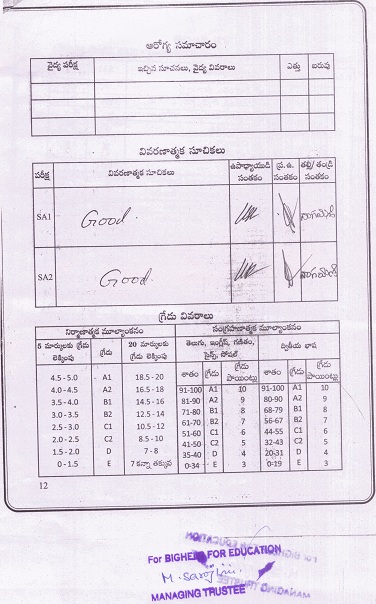 ఆరోగ్య సమాచారం
వైద్య పరీక్ష ఇచ్చిన సూచనలు, వైద్య వివరాలు ఎత్తు బరువు
వివరణాత్మక సూచికలు
పరీక్ష వివరణాత్మక సూచికలు ఉపాధ్యాయుడి సంతకం ప్ర.ఉ. సంతకం తల్లి/ తండ్రి సంతకం
SA1 Good.
SA2 Good.
గ్రేడు వివరాలు
నిర్మాణాత్మక మూల్యాంకనం సంగ్రహణాత్మక మూల్యాంకనం
5 మార్కులకు గ్రేడు లెక్కింపు గ్రేడు 20 మార్కులకు గ్రేడు లెక్కింపు తెలుగు, ఇంగ్లీష్, గణితం, సైన్స్, సోషల్ ద్వితీయ భాష
శాతం గ్రేడు గ్రేడు పాయింట్లు శాతం గ్రేడు గ్రేడు పాయింట్లు
4.5 - 5.0 A1 18.5 - 20 91-100 A1 10 91-100 A1 10
4.0 - 4.5 A2 16.5 - 18 81-90 A2 9 80-90 A2 9
3.5 - 4.0 B1 14.5 - 16 71-80 B1 8 68-79 B1 8
3.0 - 3.5 B2 12.5 - 14 61-70 B2 7 56-67 B2 7
2.5 - 3.0 C1 10.5 - 12 51-60 C1 6 44-55 C1 6
2.0 - 2.5 C2 8.5 - 10 41-50 C2 5 32-43 C2 5
1.5 - 2.0 D 7 - 8 35-40 D 4 20-31 D 4
0 - 1.5 E 7 కన్నా తక్కువ 0-34 E 3 0-19 E 3
12
For BIGHELP FOR EDUCATION
M. Sarojini
MANAGING TRUSTEE